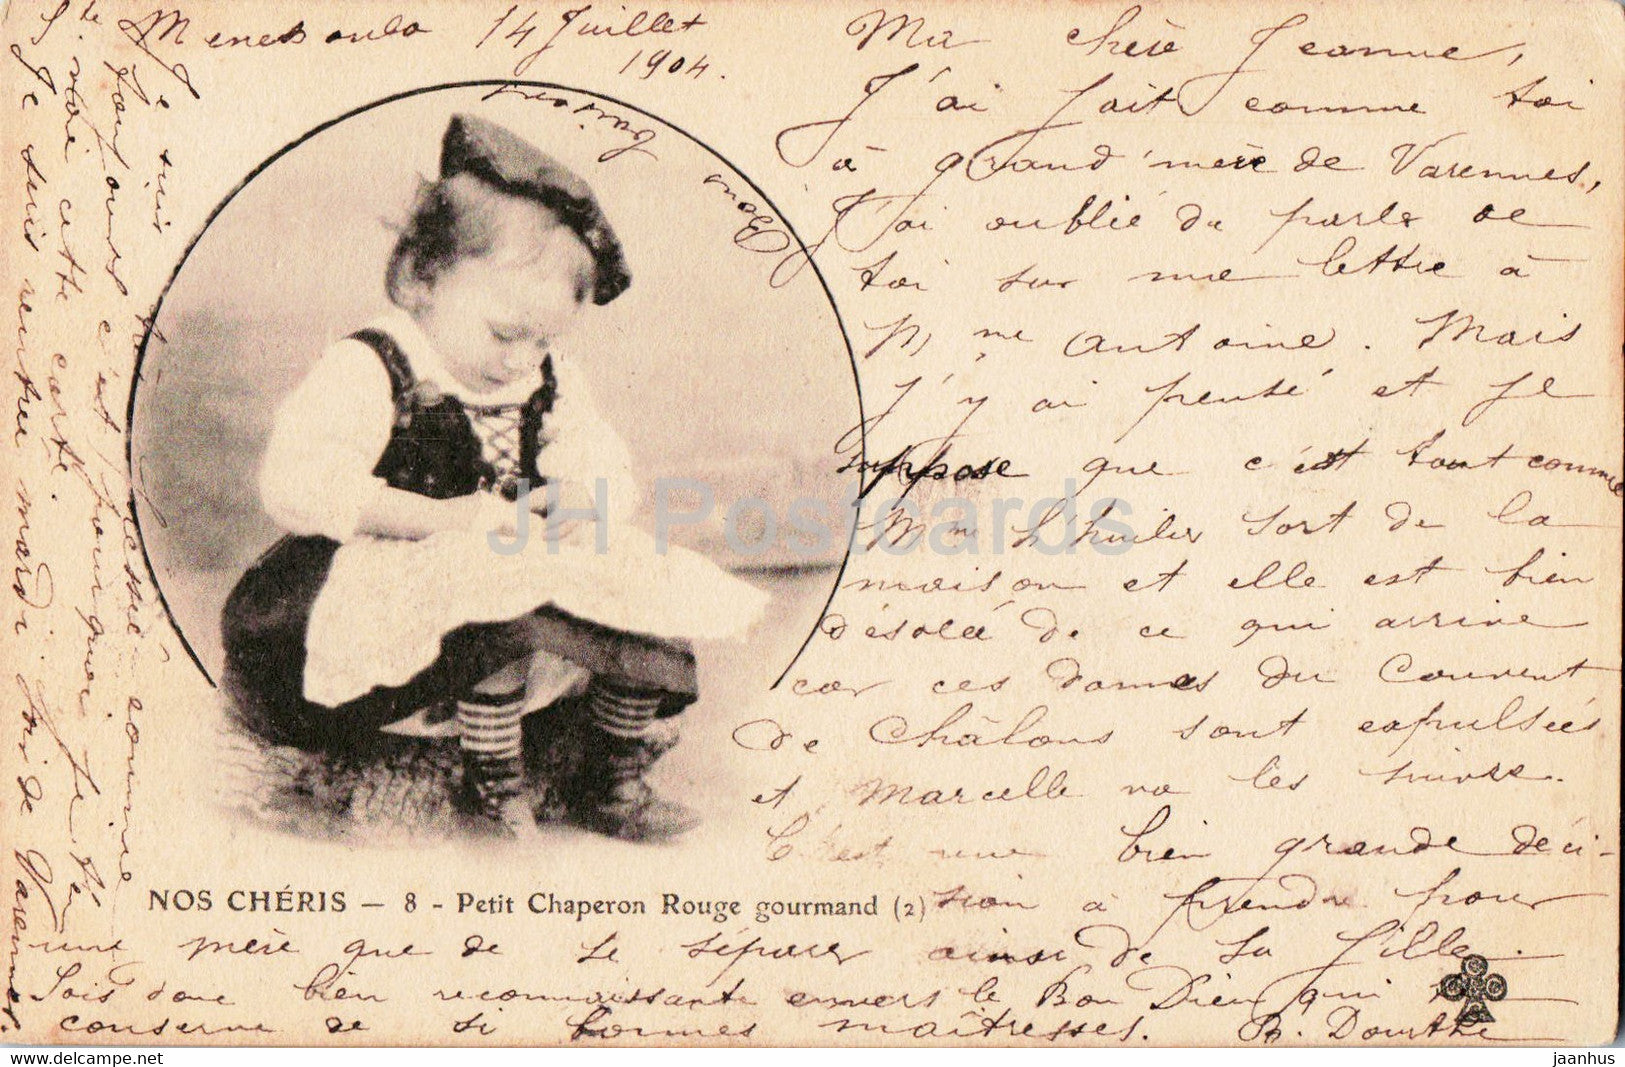 Ste Menehould 14 Juillet
1904.
Ma chère Jeanne,
J'ai fait comme toi
à grand'mère de Varennes,
J'ai oublié de parler de
toi sur ma lettre à
Mme Antoine. Mais
j'y ai pensé et je
suppose que c'est tout comme
Mme L'huilier sort de la
maison et elle est bien
désolée de ce qui arrive
car ces dames du Couvent
de Châlons sont expulsées
et Marcelle va les suivre.
C'est une bien grande déci-
sion à prendre pour
une mère que de se séparer ainsi de sa fille.
Sois donc bien reconnaissante envers le Bon Dieu qui te
conserve de si bonnes maîtresses. B. Dourthe
Bons
baisers
Je suis très pressée comme
toujours c'est pourquoi je te
envoie cette carte.
Je suis rentrée mardi soir de Varennes.
NOS CHÉRIS — 8 - Petit Chaperon Rouge gourmand (2)
JH Postcards
jaanhus
www.delcampe.net